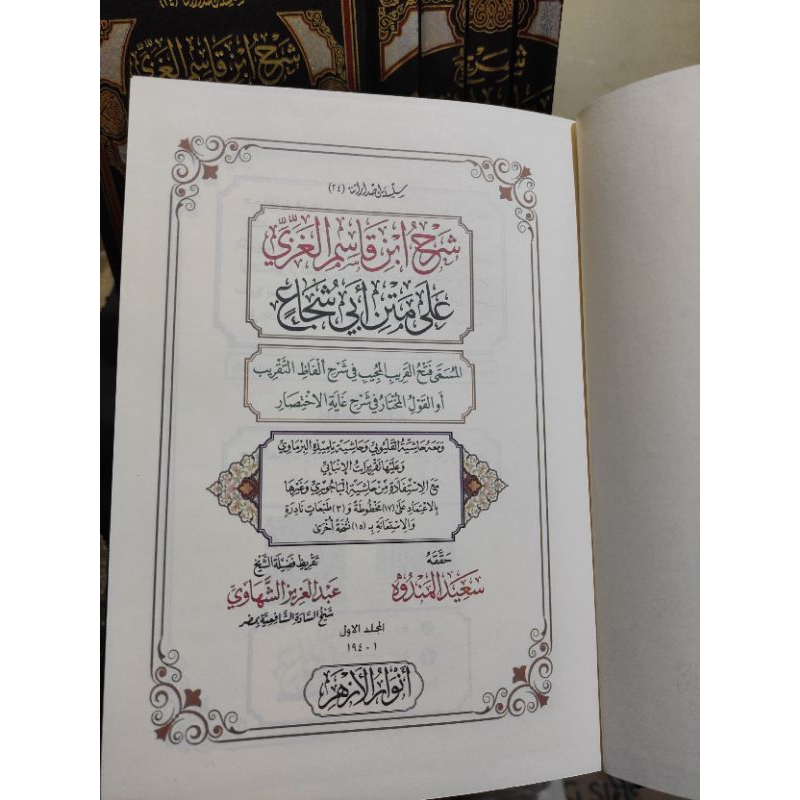 شرح ابن قاسم الغزي
شرح
سلسلة إصداراتنا (٢٤)
شَرْحُ ابْنِ قَاسِمٍ الغَزِّيِّ
عَلَى مَتْنِ أَبِي شُجَاعٍ
المُسَمَّى فَتْحُ القَرِيبِ المُجِيبِ فِي شَرْحِ أَلْفَاظِ التَّقْرِيبِ
أَوِ القَوْلُ المُخْتَارُ فِي شَرْحِ غَايَةِ الِاخْتِصَارِ
وَمَعَهُ حَاشِيَةُ القَلْيُوبِيِّ وَحَاشِيَةُ تِلْمِيذِهِ البِرْمَاوِيِّ
وَعَلَيْهَا تَقْرِيرَاتُ الإِنْبَابِيِّ
مَعَ الِاسْتِفَادَةِ مِنْ حَاشِيَةِ البَاجُورِيِّ وَغَيْرِهَا
بِالِاعْتِمَادِ عَلَى (١٧) مَخْطُوطَةً وَ (٣) طَبَعَاتٍ نَادِرَةٍ
وَالِاسْتِعَانَةِ بِـ (١٥) نُسْخَةً أُخْرَى
حَقَّقَهُ
سَعِيد المَنْدُوه
تقريظ فضيلة الشيخ
عَبْد العَزِيز الشَّهَاوِيّ
شيخ السادة الشافعية بمصر
المجلد الأول
١ - ١٩٤
أَنْوَارُ الأَزْهَر